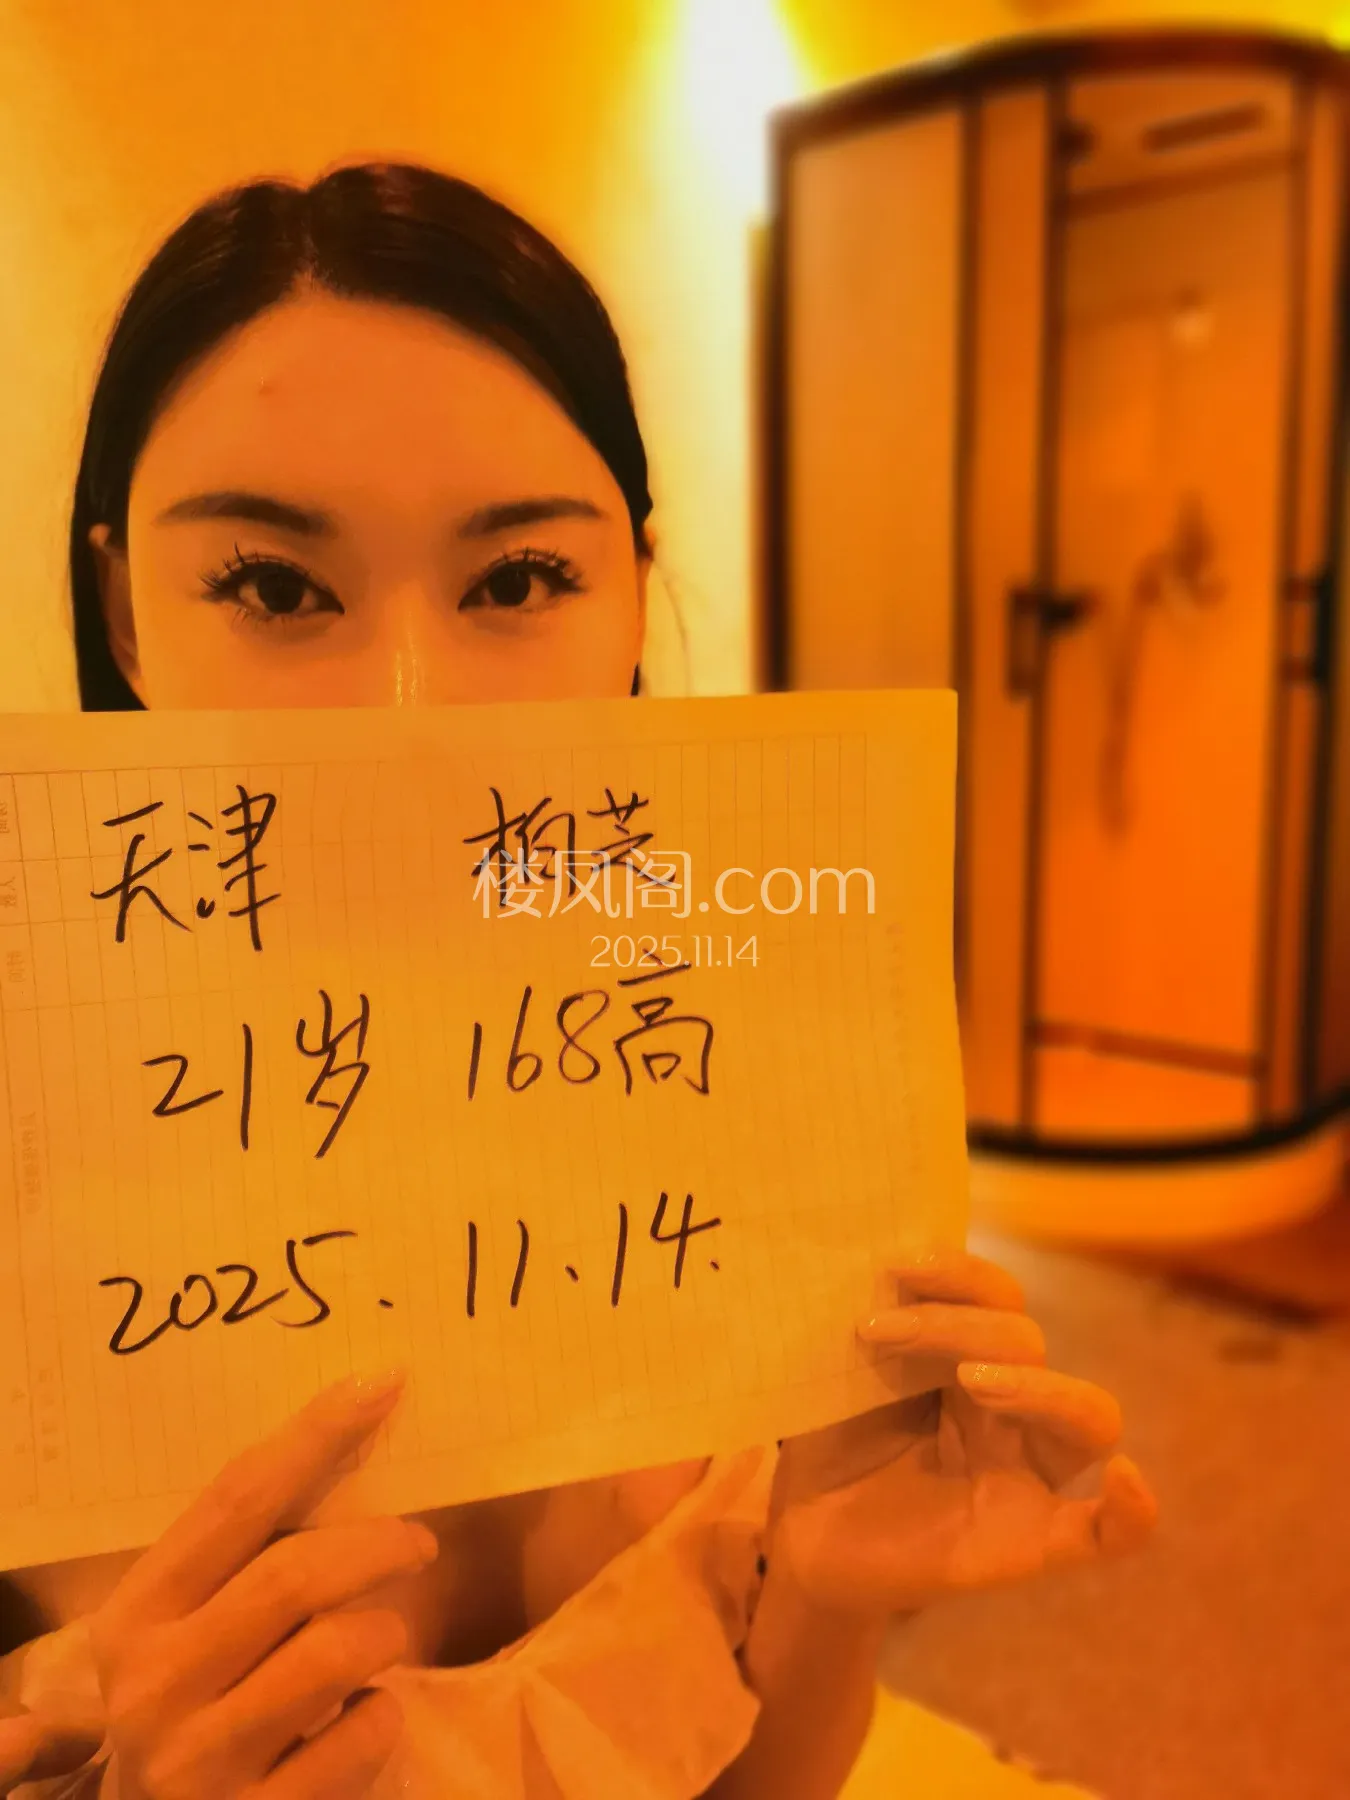 天津 柏芝
楼凤阁.com
2025.11.14
21岁 168高
2025.11.14.